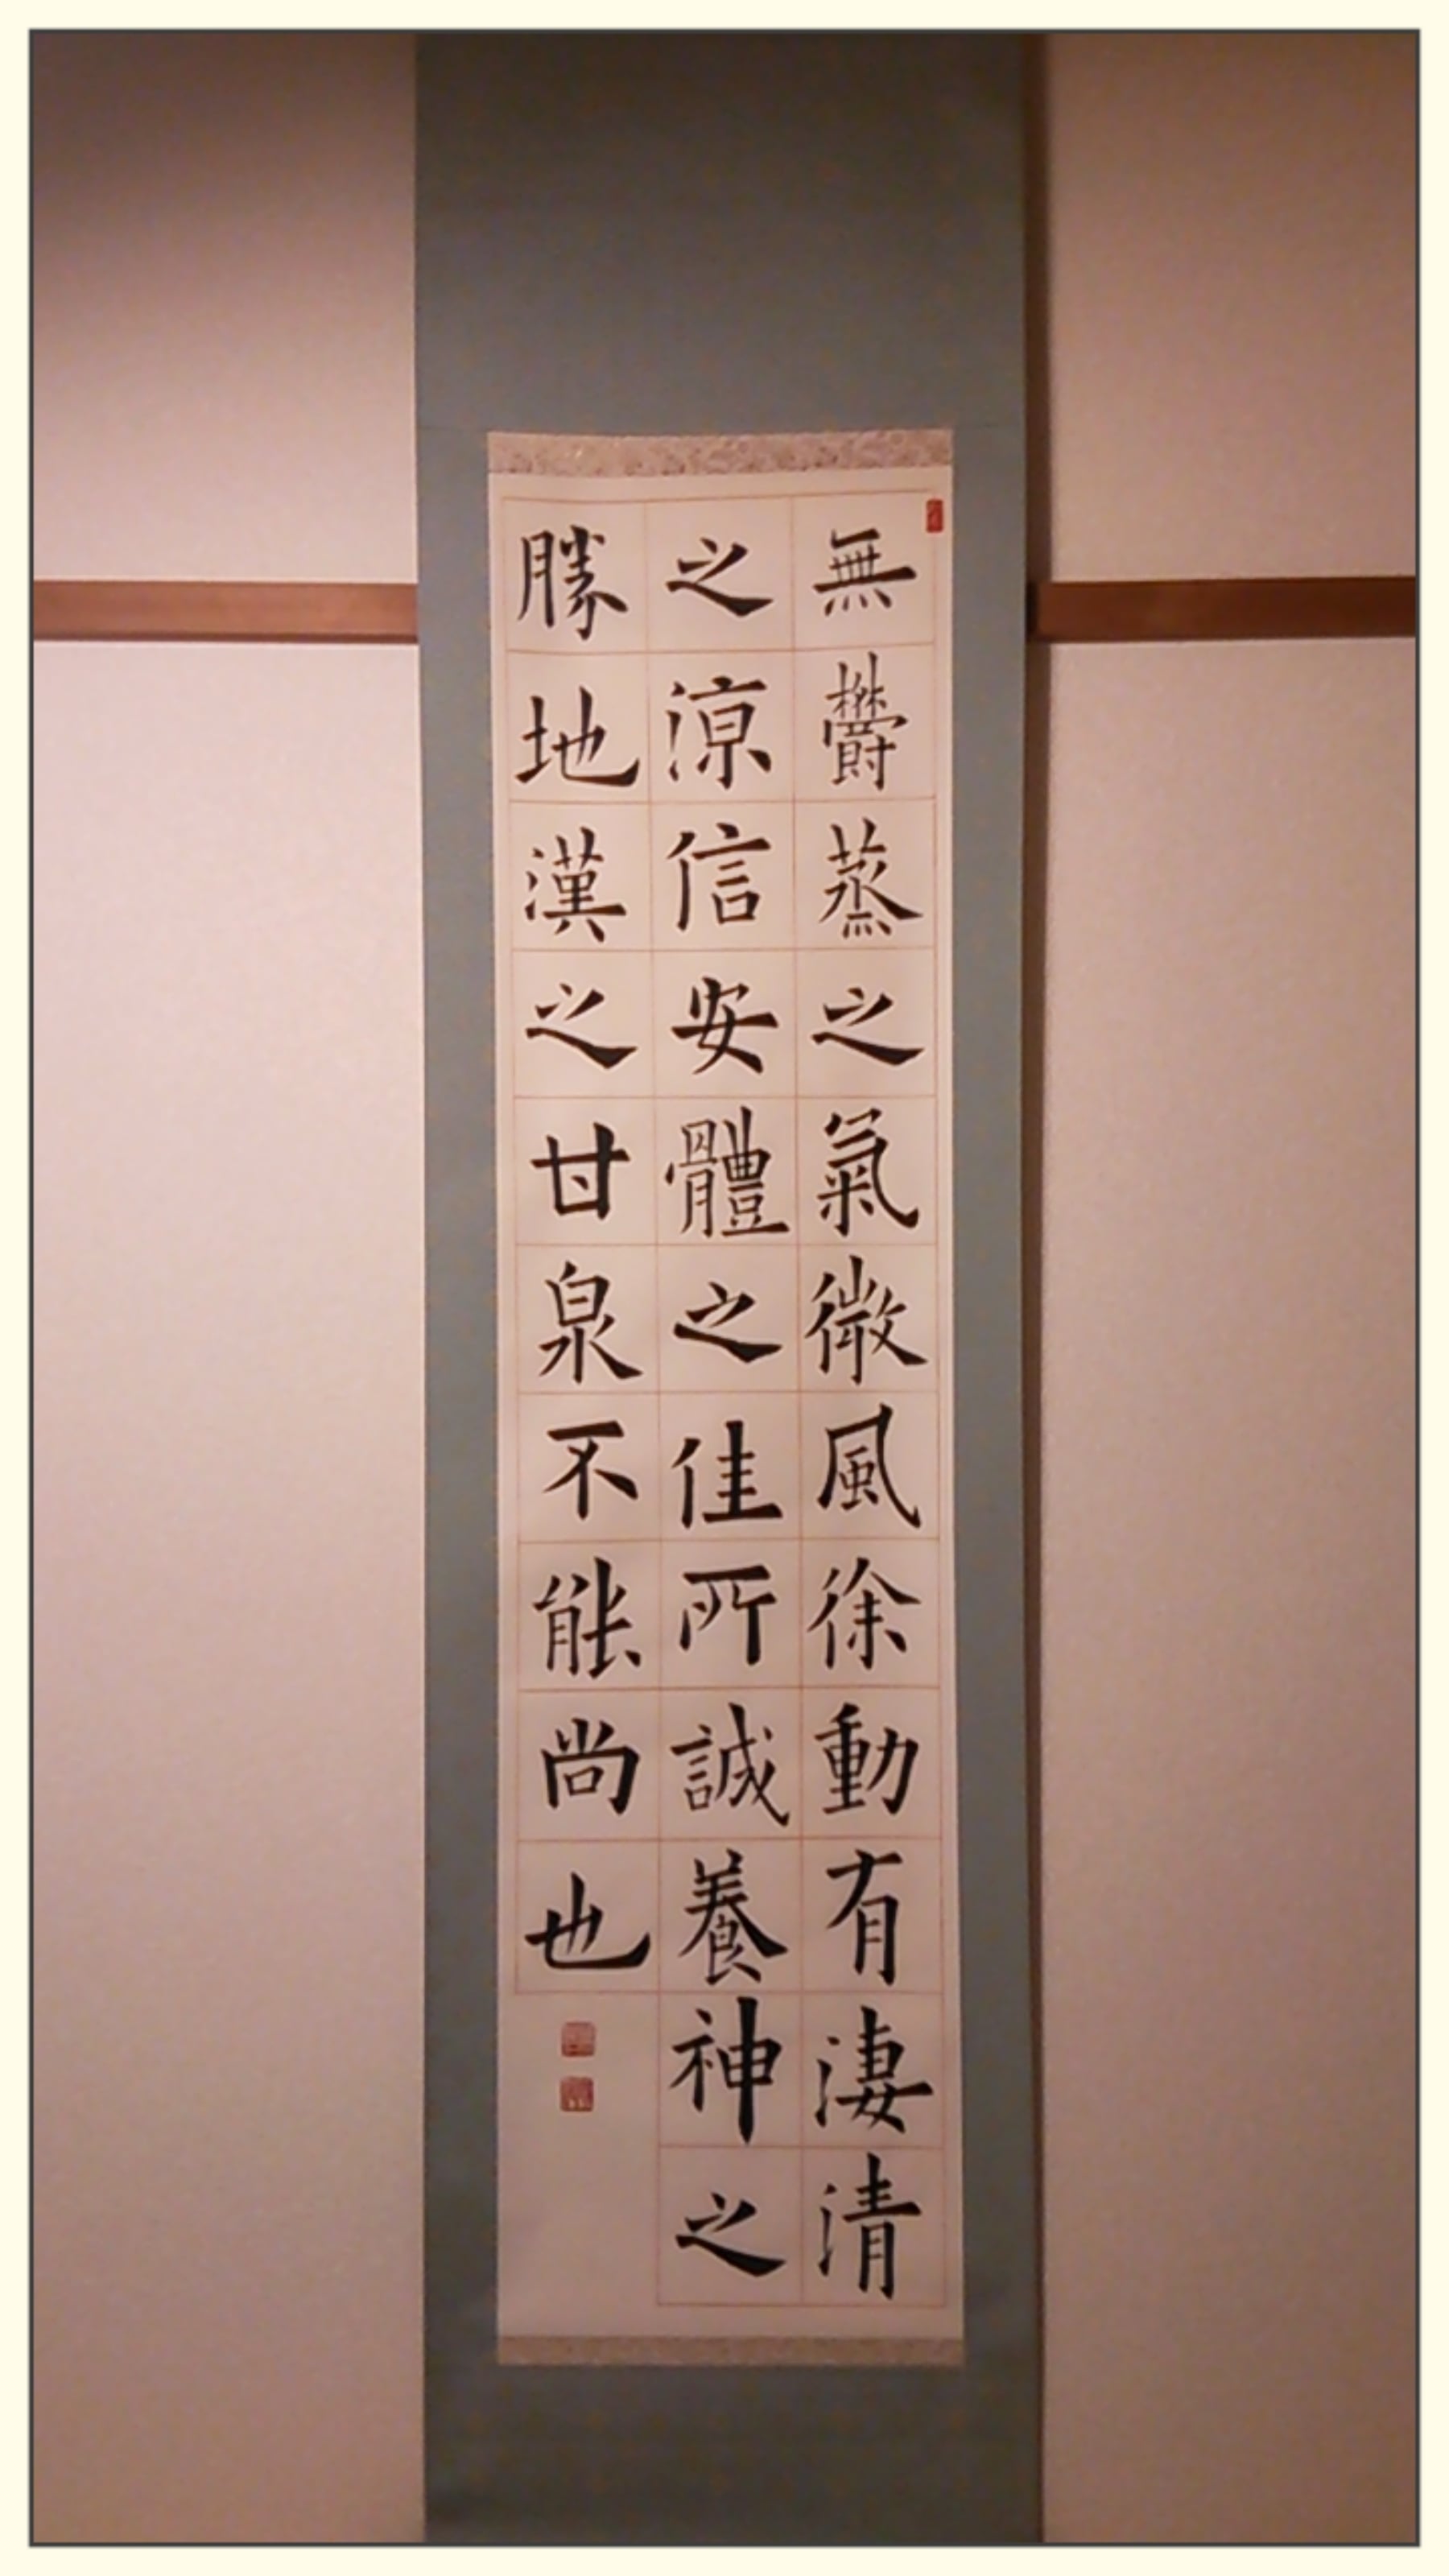 無欝蒸之氣微風徐動有淒清
之涼信安體之佳所誠養神之
勝地漢之甘泉不能尚也